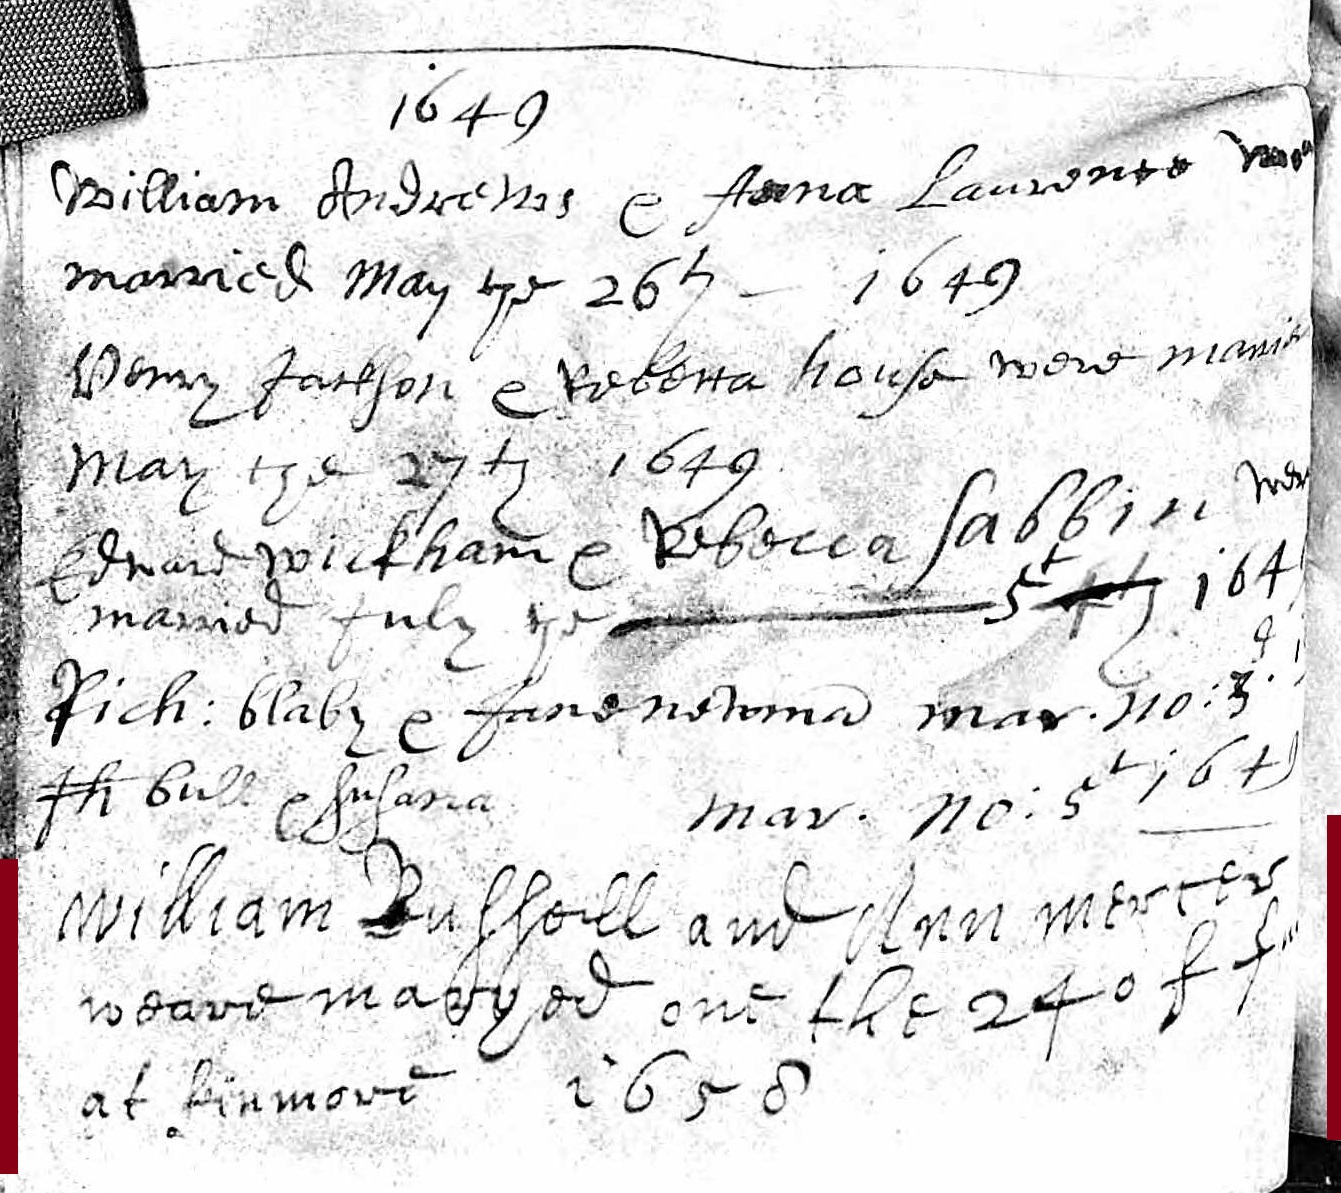 1649
William Andrews & Anna Laurence were
married May ye 26th – 1649
Henry Jackson & Rebecca house were marrie
May the 27th 1649
Edward Wickham & Rebecca Sabbin wer
married July ye 5t 164
Rich: blaby & Jane newma mar. no: 3
bull & Susana mar. no: 5t 1649
William Russell and Ann mercer
weare maryed one the 24 of
at 1658